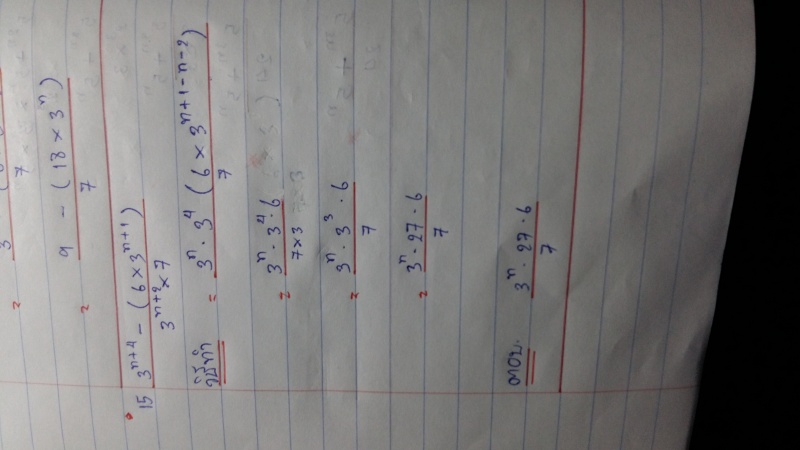 = 9 - (18 × 3ⁿ) / 7
15 3ⁿ⁺⁴ - (6 × 3ⁿ⁺¹) / 3ⁿ⁺² × 7
วิธีทำ = 3ⁿ · 3⁴ (6 × 3ⁿ⁺¹⁻ⁿ⁻²) / 7
= 3ⁿ · 3⁴ · 6 / 7 × 3
= 3ⁿ · 3³ · 6 / 7
= 3ⁿ · 27 · 6 / 7
ตอบ. 3ⁿ · 27 · 6 / 7